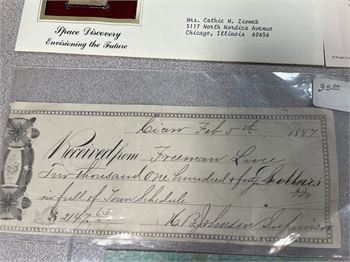 Space Discovery
Envisioning the Future
Mrs. Cathie M. Ziomek
5117 North Nordica Avenue
Chicago, Illinois 60656
35.00
Feb 5th 1887
Received from Freeman Luce
Two thousand One hundred & Dollars
in full of Town Schedule
$ 2147
Johnson